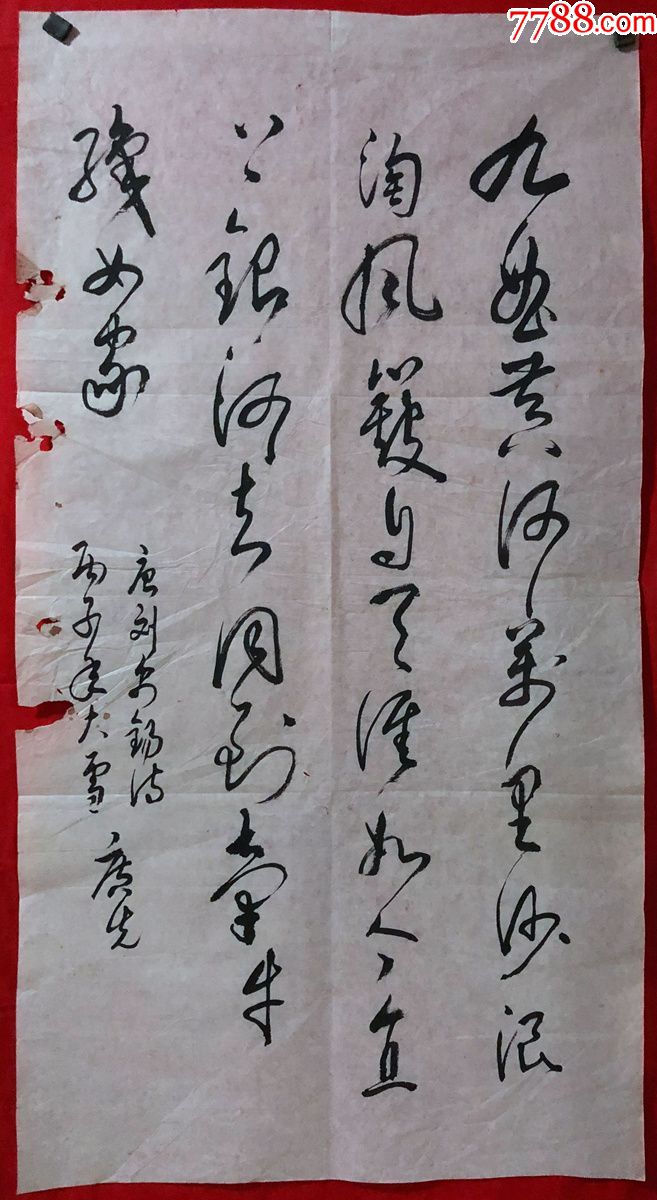 7788.com
九曲黄河萬里沙浪
淘風簸自天涯如今直
上銀河去同到牽牛
織女家
唐刘禹錫诗
丙子年大雪 廣先